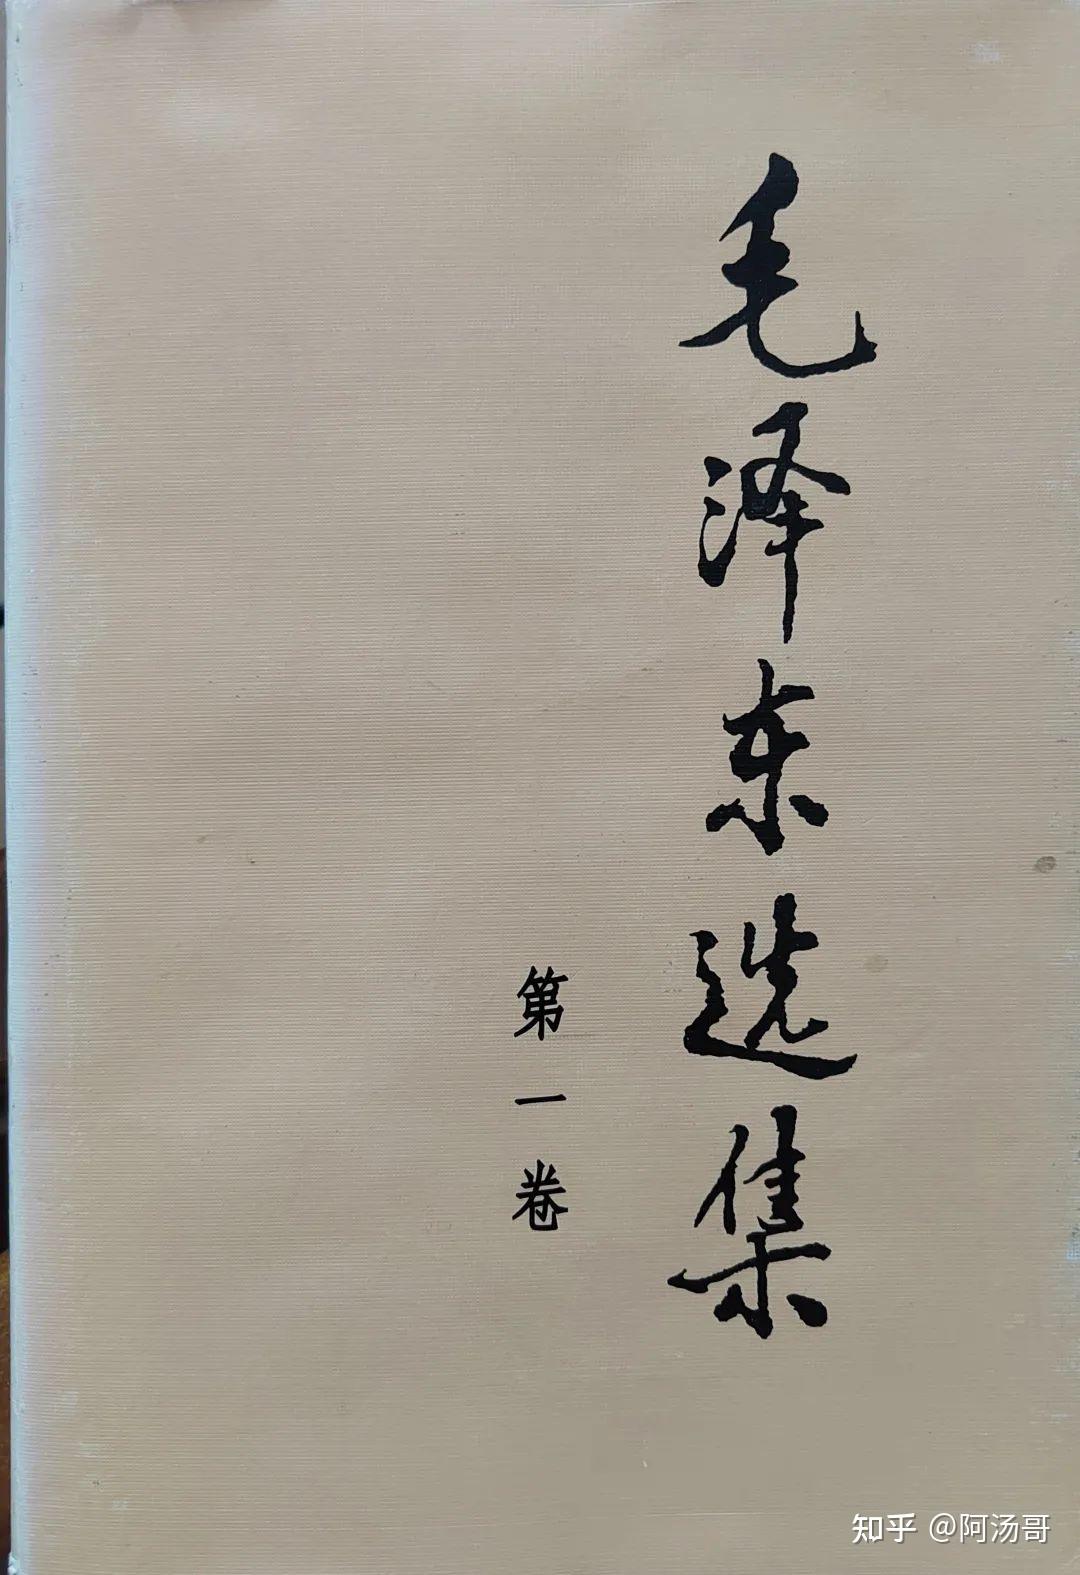 毛泽东选集
第一卷
知乎 @阿汤哥